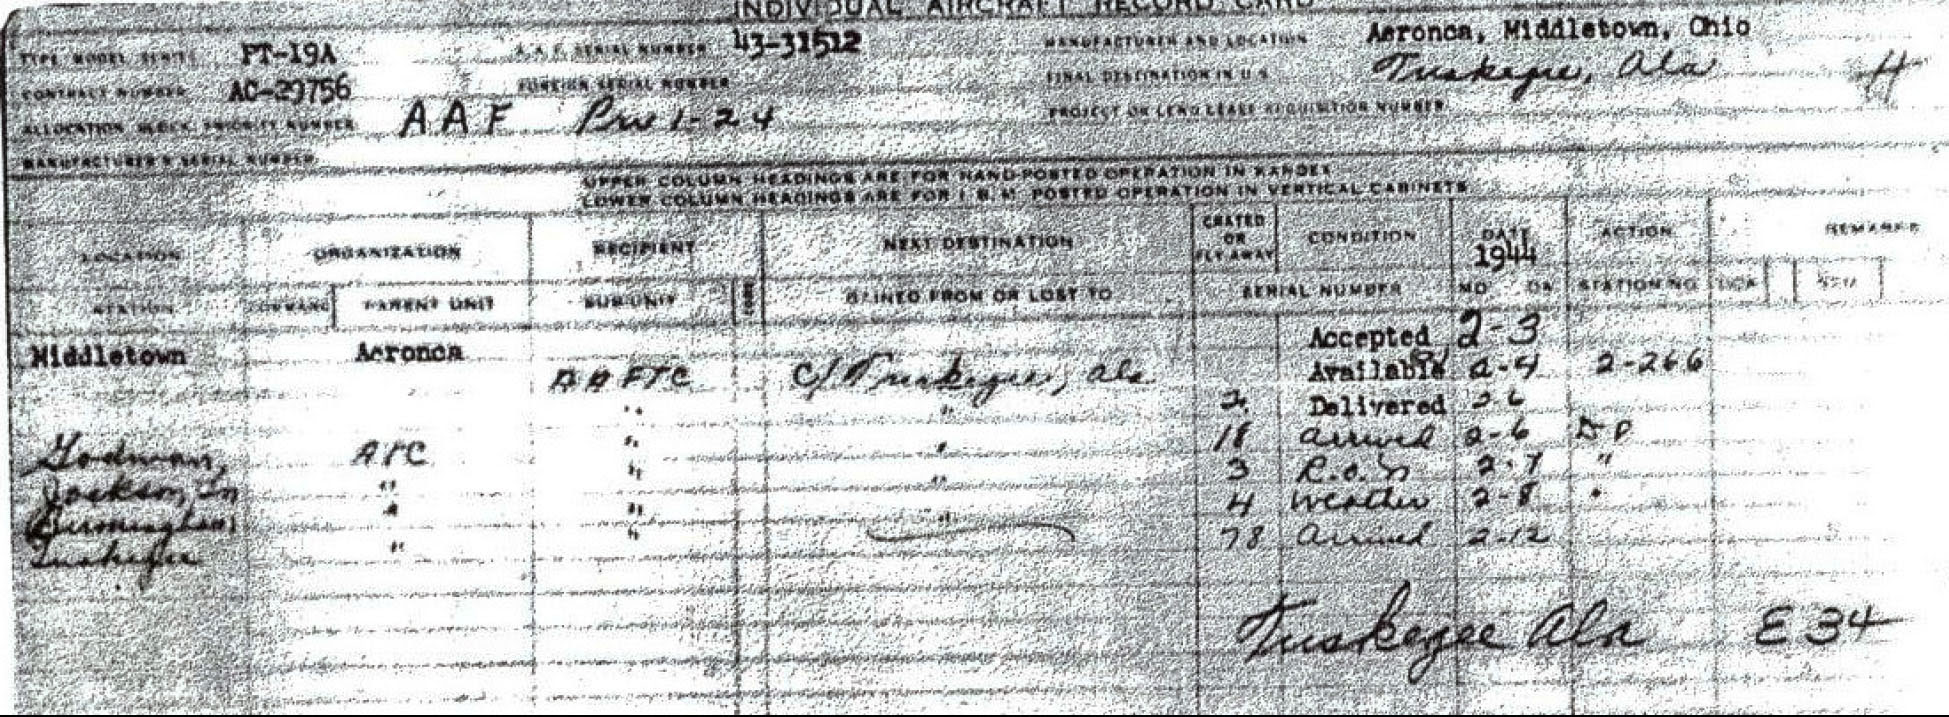 INDIVIDUAL AIRCRAFT RECORD CARD
TYPE MODEL SERIES PT-19A A.A.F. SERIAL NUMBER 43-31512 MANUFACTURER AND LOCATION Aeronca, Middletown, Ohio
CONTRACT NUMBER AC-29756 FOREIGN SERIAL NUMBER FINAL DESTINATION IN U.S. Tuskegee, Ala
ALLOCATION BLOCK PRIORITY NUMBER AAF 1-24 PROJECT OR LEND LEASE REQUISITION NUMBER
MANUFACTURER'S SERIAL NUMBER
UPPER COLUMN HEADINGS ARE FOR HAND-POSTED OPERATION IN KARDEX
LOWER COLUMN HEADINGS ARE FOR I.B.M. POSTED OPERATION IN VERTICAL CABINETS
LOCATION ORGANIZATION RECIPIENT NEXT DESTINATION CRATED OR FLY AWAY CONDITION DATE 1944 ACTION REMARKS
STATION COMMAND PARENT UNIT SUB-UNIT CODE GAINED FROM OR LOST TO SERIAL NUMBER MO DA STATION NO.
Middletown Aeronca Accepted 2-3
AAFTC C/ Tuskegee, Ala Available 2-4 2-266
" " 2 Delivered 2 6
Godman, ATC " " 18 Arrived 2-6
Jackson, " " " 3 R.O.N 2-7 "
Birmingham " " " 4 Weather 2-8 "
Tuskegee " " 78 Arrived 2-12
Tuskegee Ala E 34